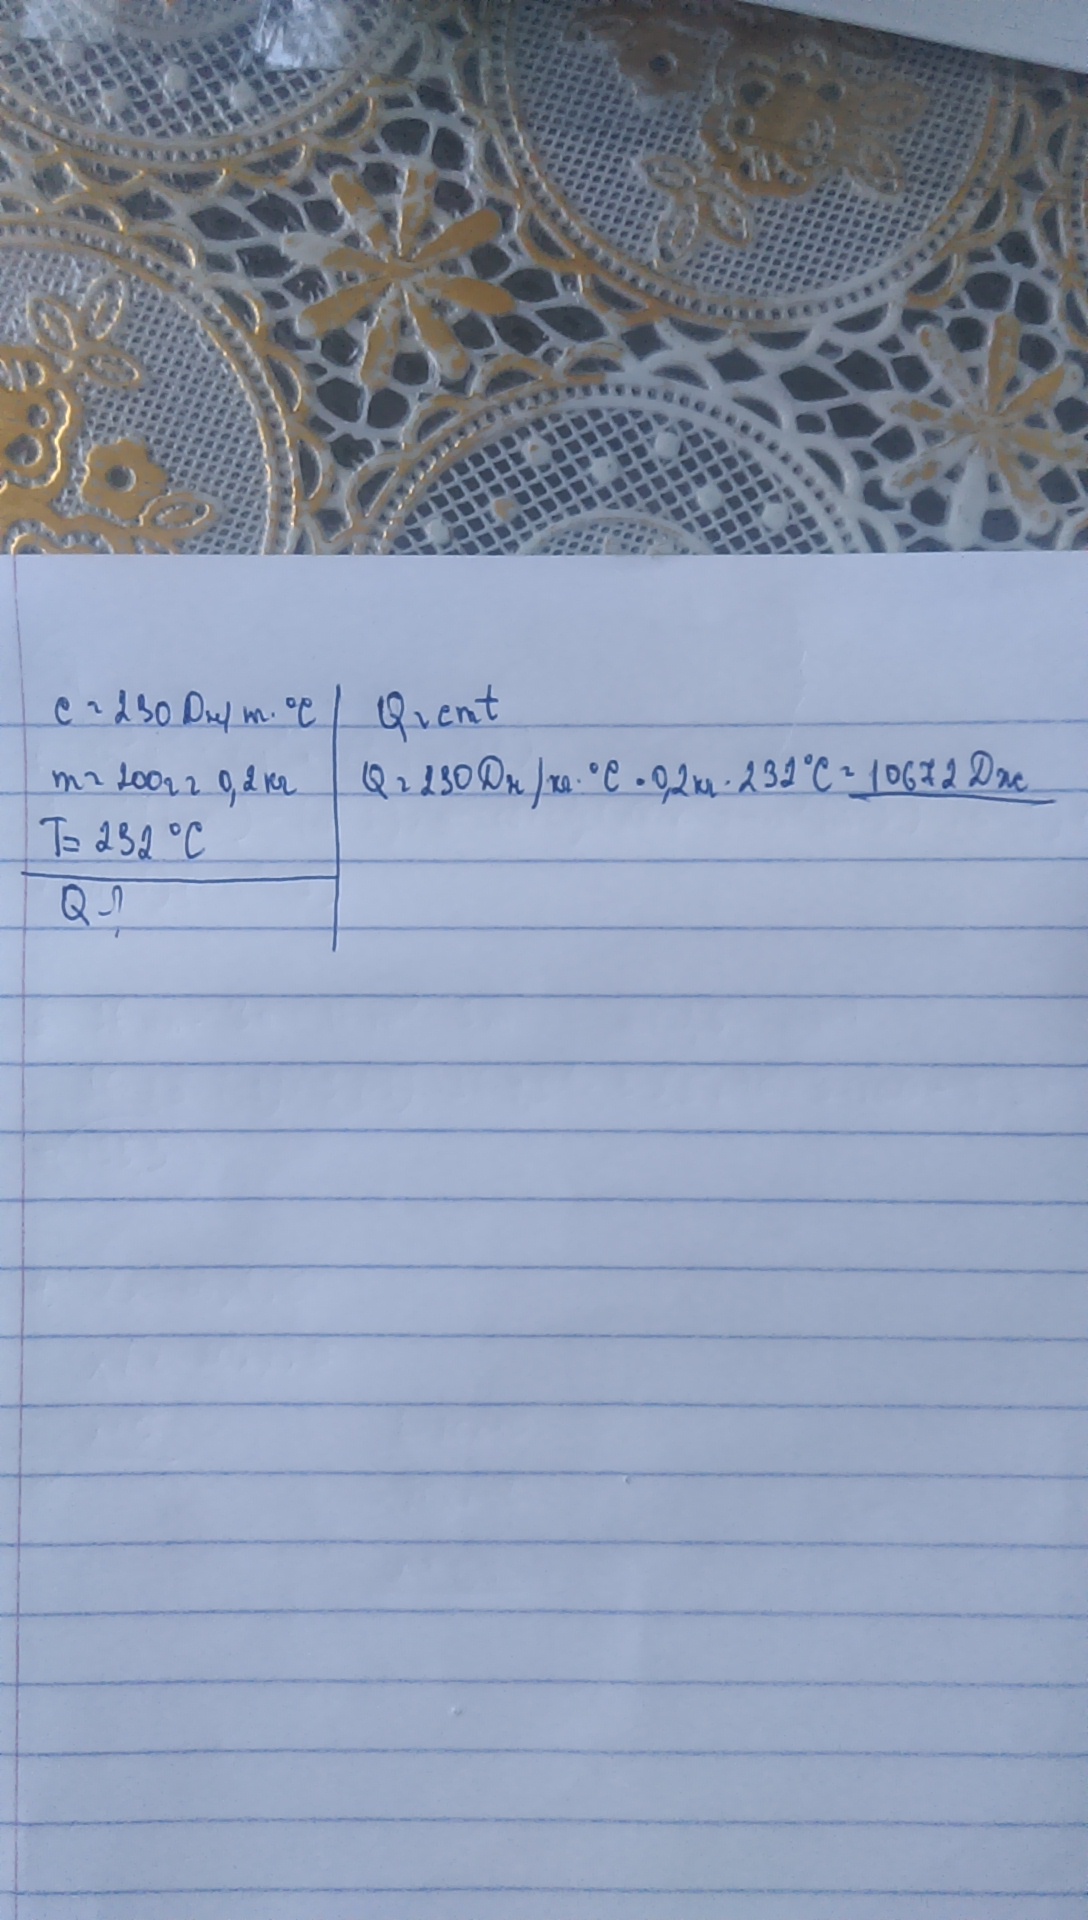 c = 230 Дж/m·°C
m = 200г = 0,2кг
T = 232 °C
Q - ?
Q = cmt
Q = 230 Дж/кг·°C · 0,2кг · 232°C = 10672 Дж